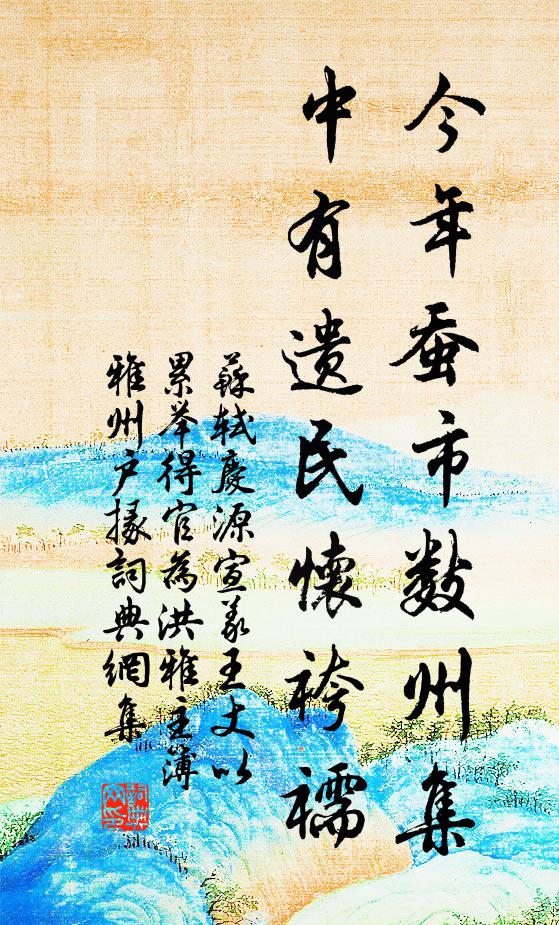 今年蚕市数州集
中有遗民怀袴襦
苏轼庆源宣义王丈以
累举得官为洪雅主簿
雅州户掾词典网集